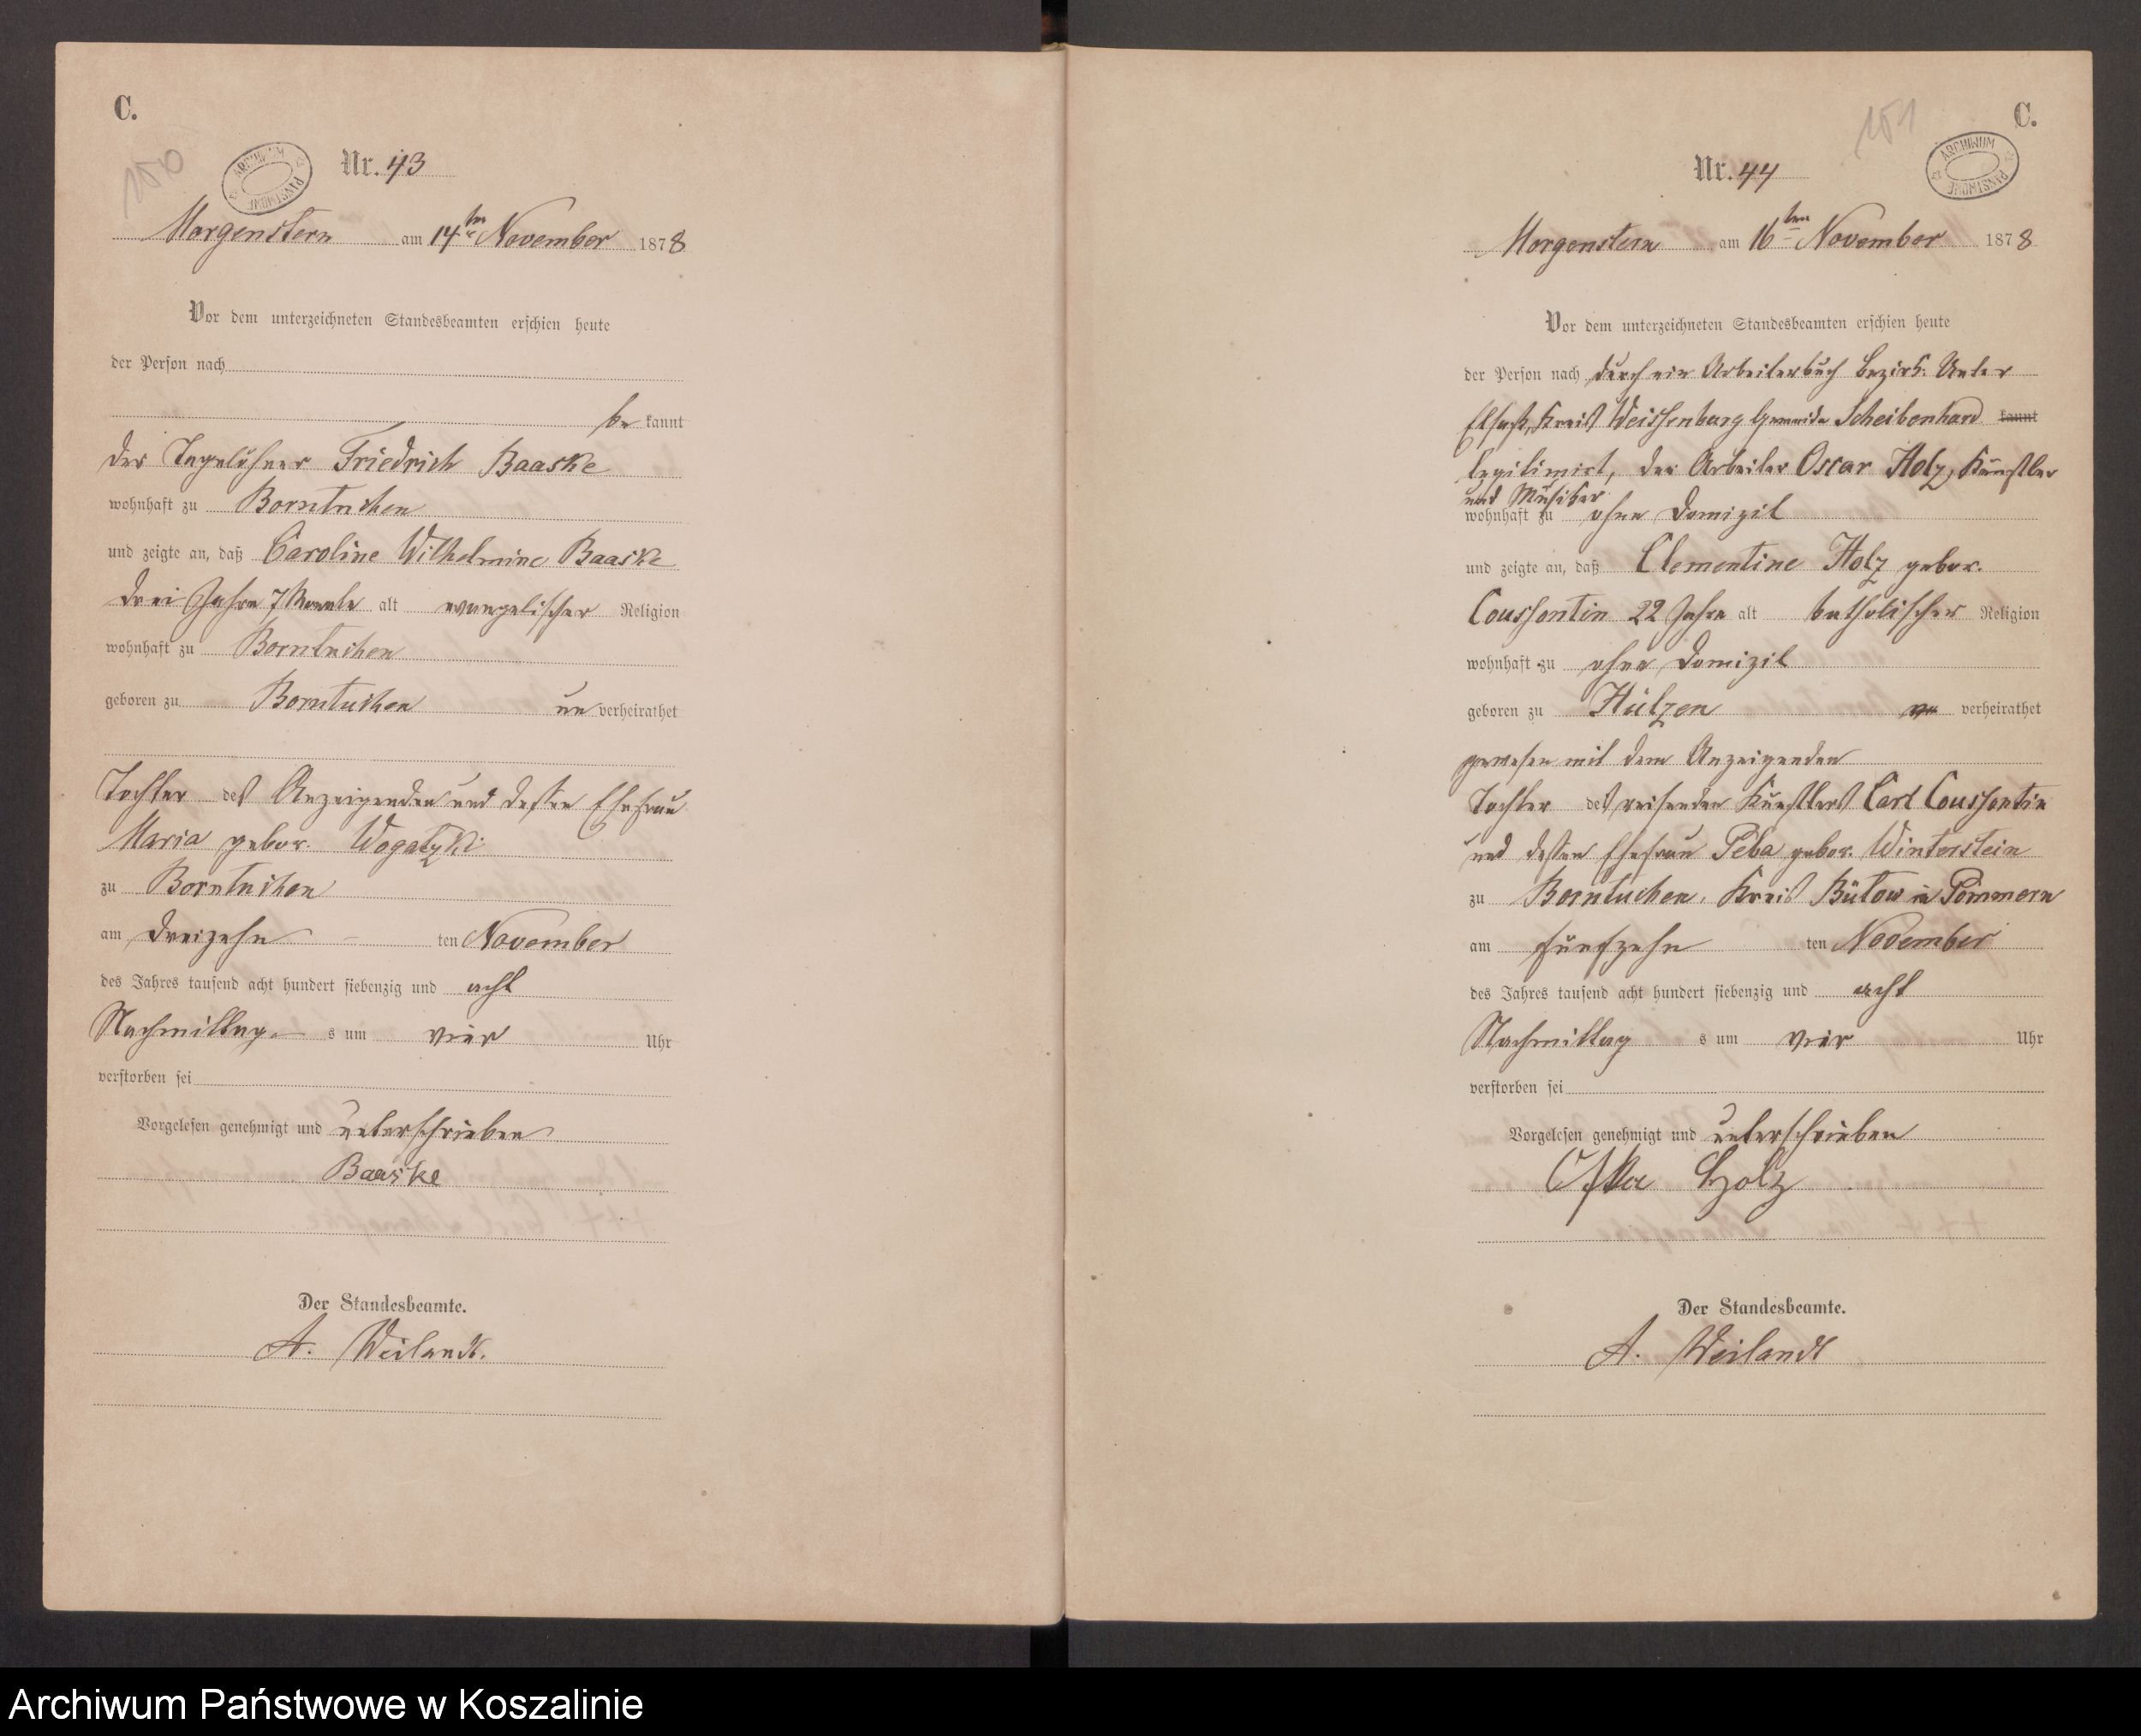 C.
150
ARCHIWUM PAŃSTWOWE
Nr. 43
Morgenstern am 14ten November 1878
Vor dem unterzeichneten Standesbeamten erschien heute
der Person nach
be kannt
der Tagelöhner Friedrich Baaske
wohnhaft zu Borntuchen
und zeigte an, daß Caroline Wilhelmine Baaske
drei Jahre 7 Monate alt evangelischer Religion
wohnhaft zu Borntuchen
geboren zu Borntuchen un verheirathet
Tochter des Anzeigenden und dessen Ehefrau
Maria gebor. Wogatzki
zu Borntuchen
am dreizehn ten November
des Jahres tausend acht hundert siebenzig und acht
Nachmittag s um vier Uhr
verstorben sei
Vorgelesen genehmigt und unterschrieben
Baaske
Der Standesbeamte.
A. Weilandt.
151
C.
ARCHIWUM PAŃSTWOWE
Nr. 44
Morgenstern am 16ten November 1878
Vor dem unterzeichneten Standesbeamten erschien heute
der Person nach durch ein Arbeiterbuch Bezirk. Unter
Elsaß, Kreis Weissenburg Gemeinde Scheibenhard kannt
legitimirt, der Arbeiter Oscar Holz, Künstler
und Musiker
wohnhaft zu ohne Domizil
und zeigte an, daß Clementine Holz gebor.
Coussontin 22 Jahre alt katholischer Religion
wohnhaft zu ohne Domizil
geboren zu Hülzen verheirathet
gewesen mit dem Anzeigenden
Tochter des reisenden Künstlers Carl Coussontin
und dessen Ehefrau Peba gebor. Winterstein
zu Borntuchen, Kreis Bütow in Pommern
am fünfzehn ten November
des Jahres tausend acht hundert siebenzig und acht
Nachmittag s um vier Uhr
verstorben sei
Vorgelesen genehmigt und unterschrieben
Holz
Der Standesbeamte.
A. Weilandt
Archiwum Państwowe w Koszalinie